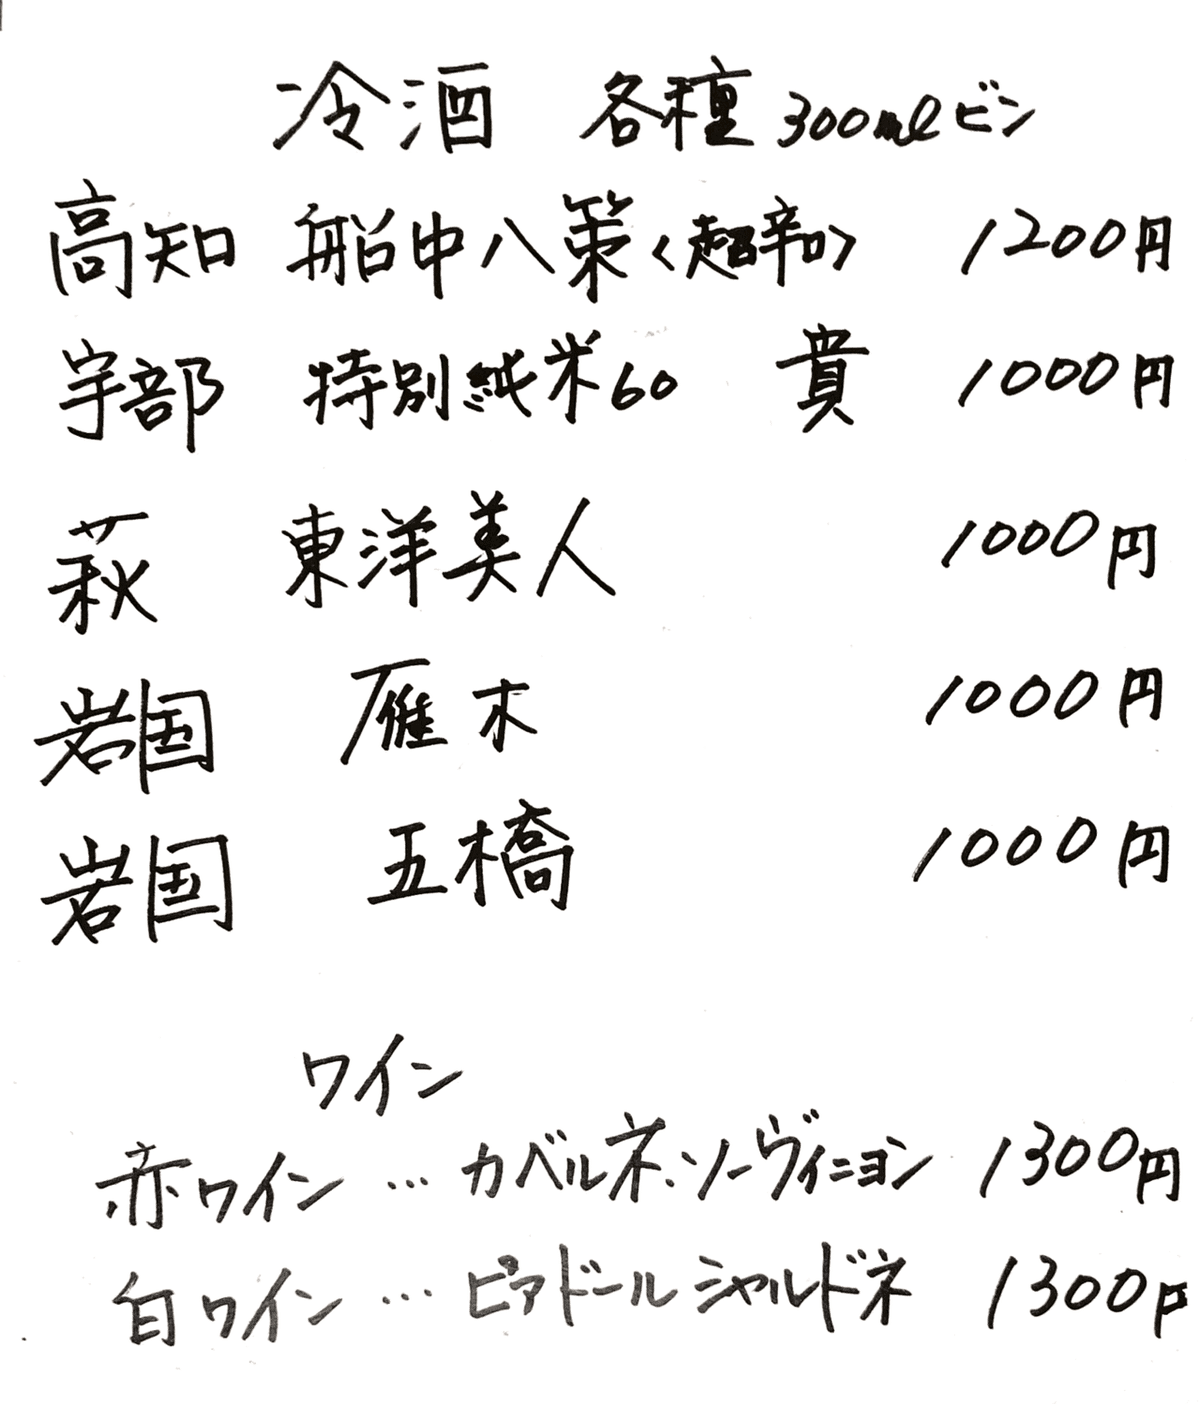 冷酒 各種 300mlビン
高知 船中八策<超辛口> 1200円
宇部 特別純米60 貴 1000円
萩 東洋美人 1000円
岩国 雁木 1000円
岩国 五橋 1000円
ワイン
赤ワイン … カベルネ・ソーヴィニヨン 1300円
白ワイン … ピアドール シャルドネ 1300円